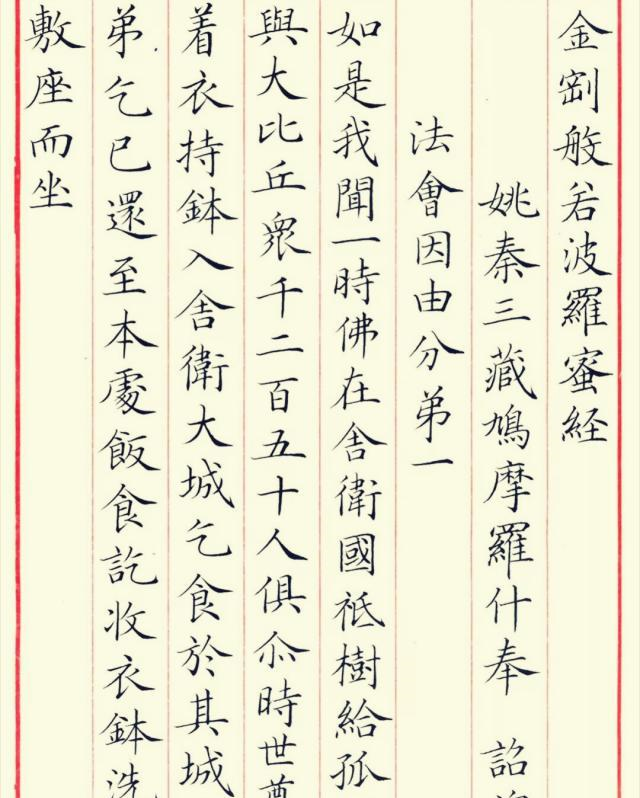 金剛般若波羅蜜経
姚秦三藏鳩摩羅什奉 詔
法會因由分弟一
如是我聞一時佛在舍衛國祗樹給孤
與大比丘眾千二百五十人俱尒時世尊
着衣持鉢入舍衛大城乞食於其城
弟乞已還至本處飯食訖收衣鉢洗
敷座而坐